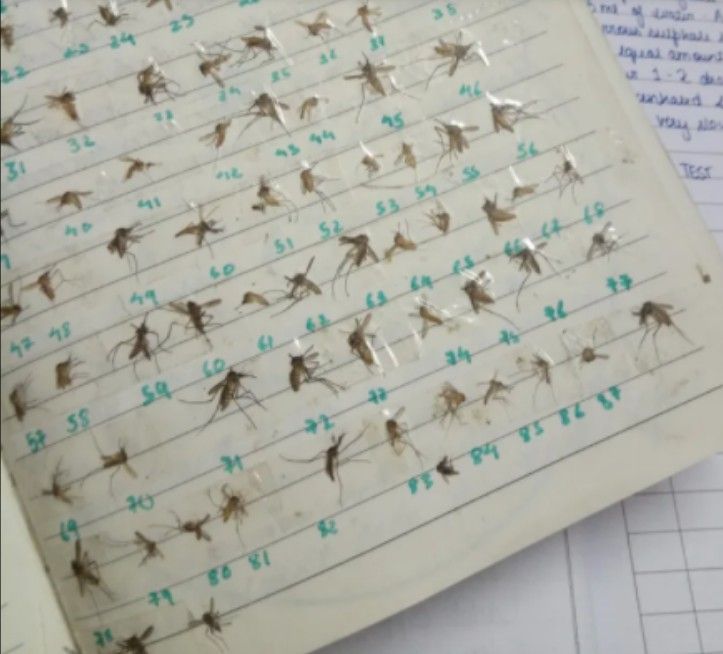 22 23 24 25
31 32 33 34 35 36 37
40 41 42 43 44 45 46
47 48 49 50 51 52 53 54 55 56
57 58 59 60 61 62 63 64 65 66 67 68
69 70 71 72 73 74 75 76 77
78 79 80 81 82 83 84 85 86 87
ml of
sulphate
equal amount
1-2
very
TEST